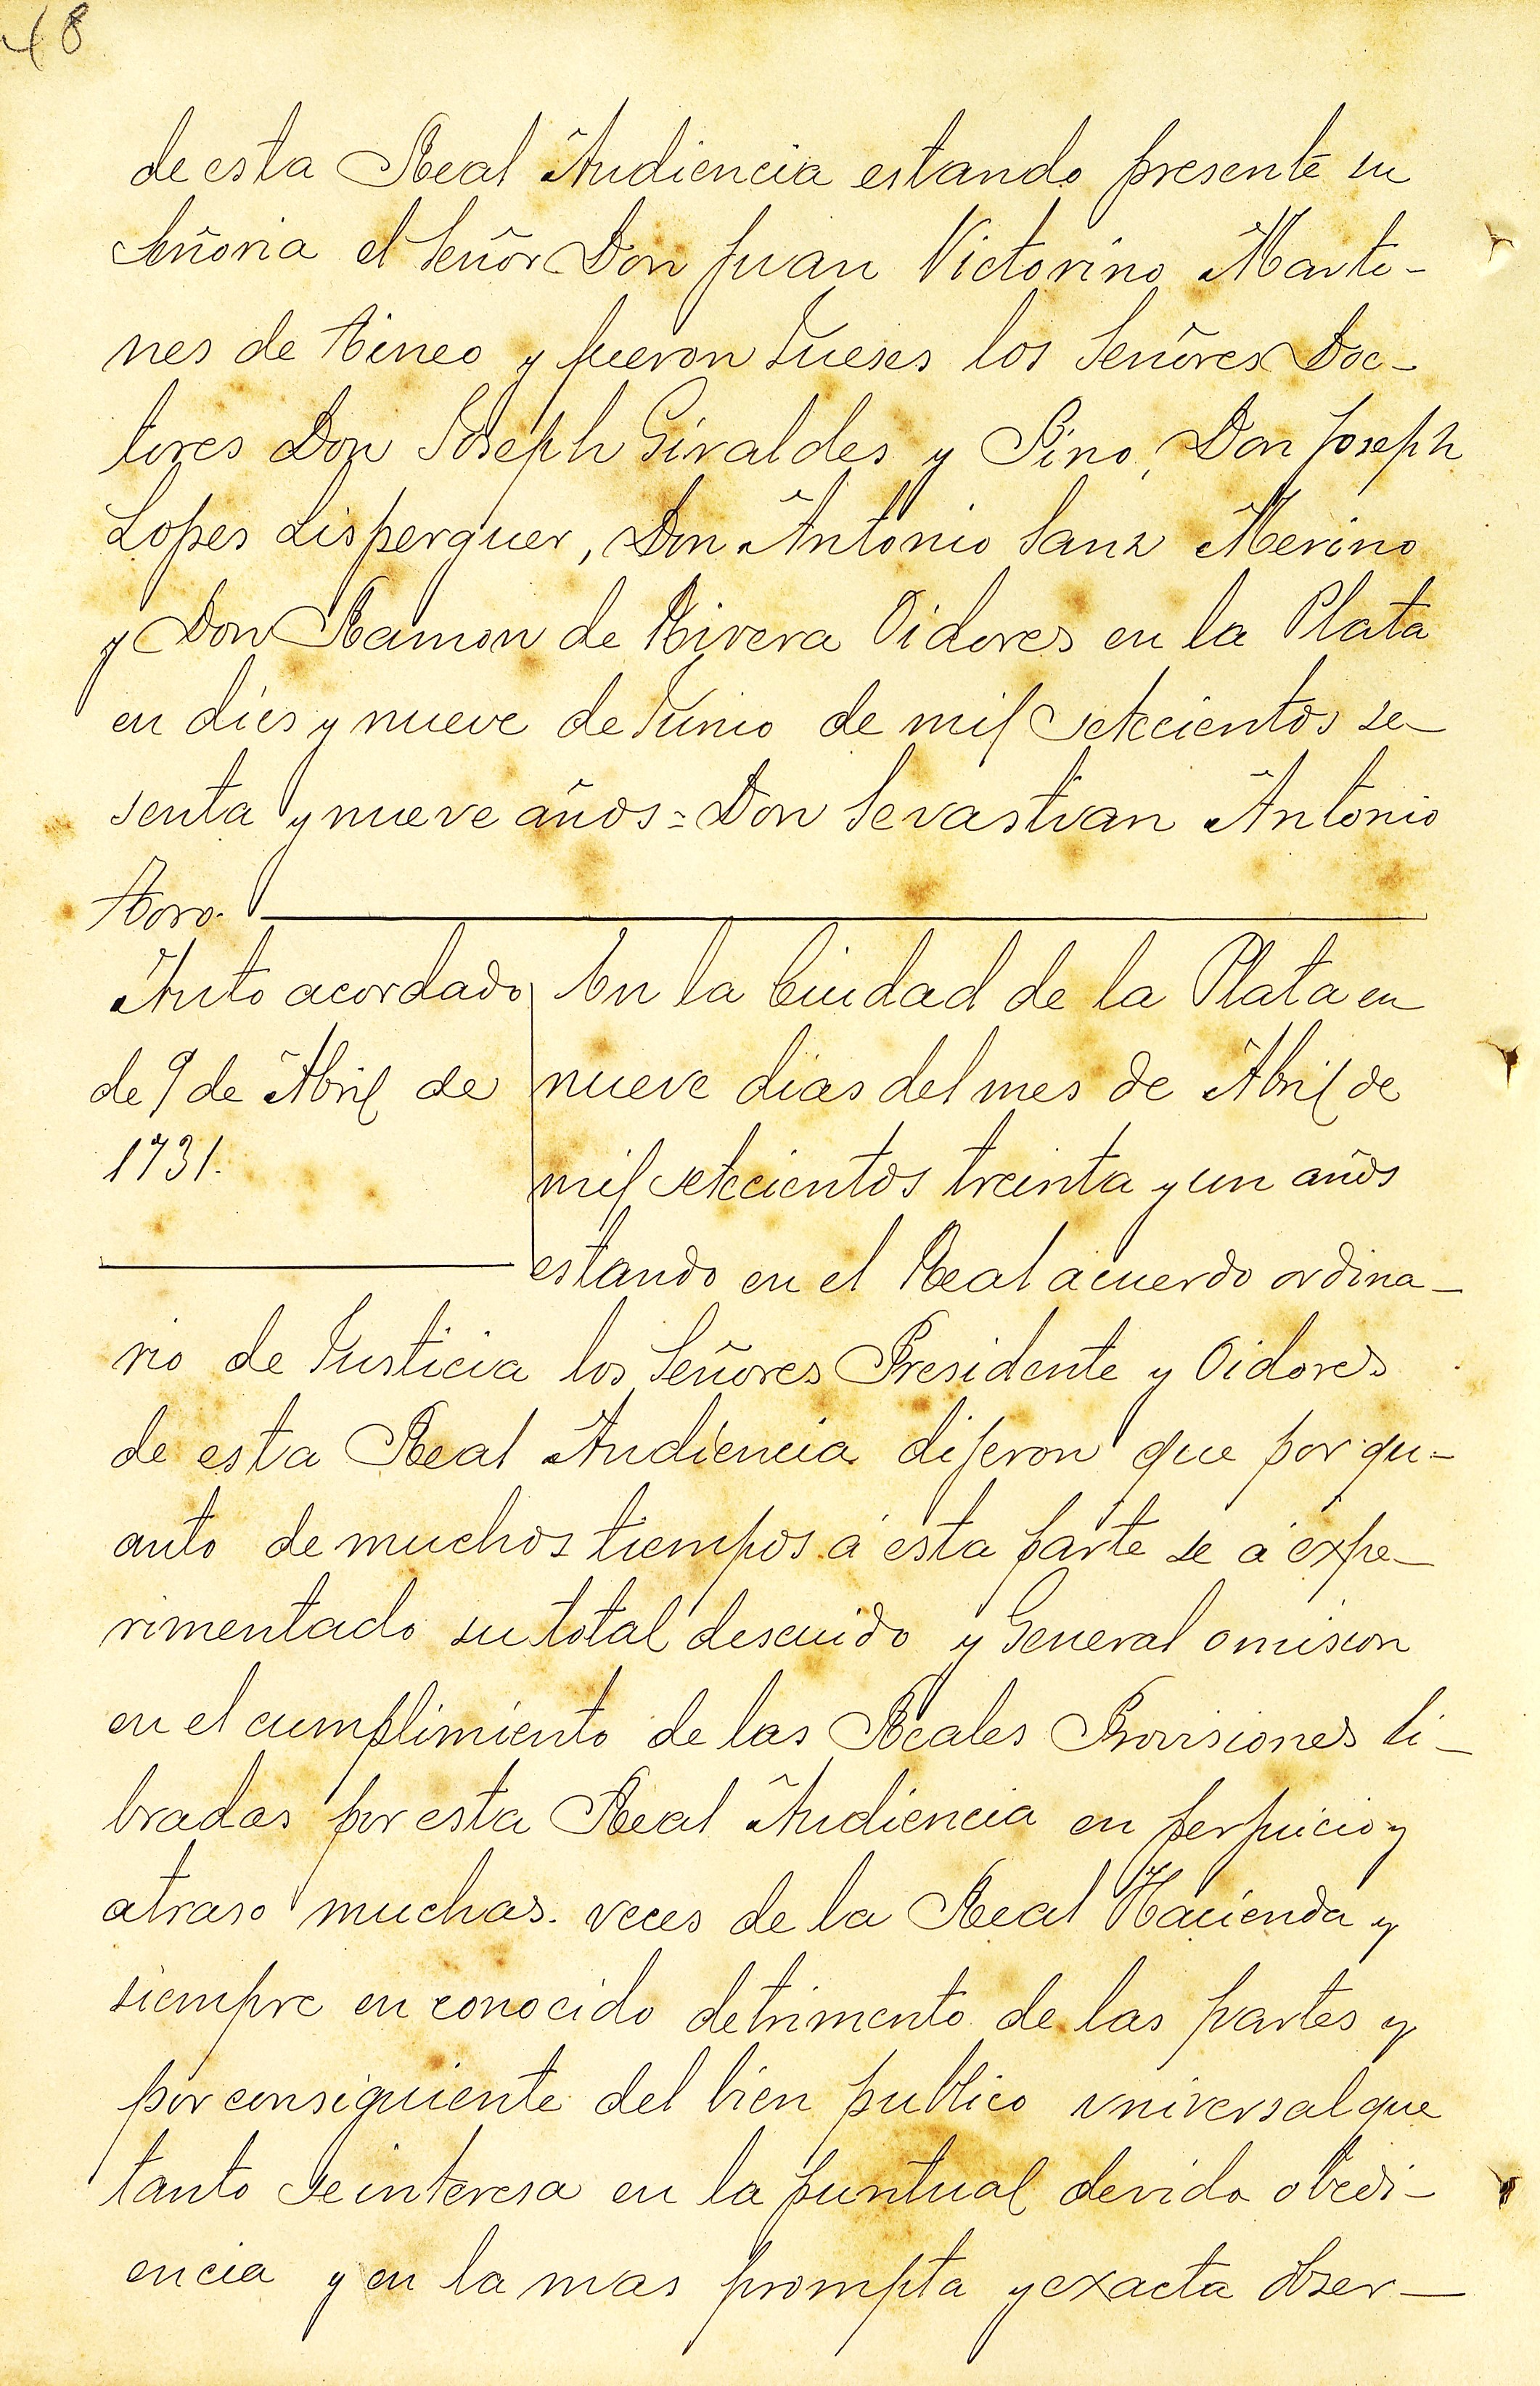 48
de esta Real Audiencia estando presente su
Señoria el Señor Don Juan Victorino Marti-
nes de Tineo y fueron Jueses los Señores Doc-
tores Don Joseph Giraldes y Pino, Don Joseph
Lopes Lisperguer, Don Antonio Sanz Merino
y Don Ramon de Rivera Oidores en la Plata
en dies y nueve de Junio de mil setecientos se-
senta y nueve años = Don Sevastian Antonio
Toro.
Auto acordado
de 9 de Abril de
1731.
En la Ciudad de la Plata en
nueve dias del mes de Abril de
mil setecientos treinta y un años
estando en el Real acuerdo ordina-
rio de Justicia los Señores Presidente y Oidores
de esta Real Audiencia dijeron que por qu-
anto de muchos tiempos á esta parte se á expe-
rimentado su total descuido y General omision
en el cumplimiento de las Reales Provisiones li-
bradas por esta Real Audiencia en perjuicio y
atraso muchas veces de la Real Hacienda y
siempre en conocido detrimento de las partes y
por consiguiente del bien publico vniversal que
tanto se interesa en la puntual devida obedi-
encia y en la mas prompta y exacta obser-